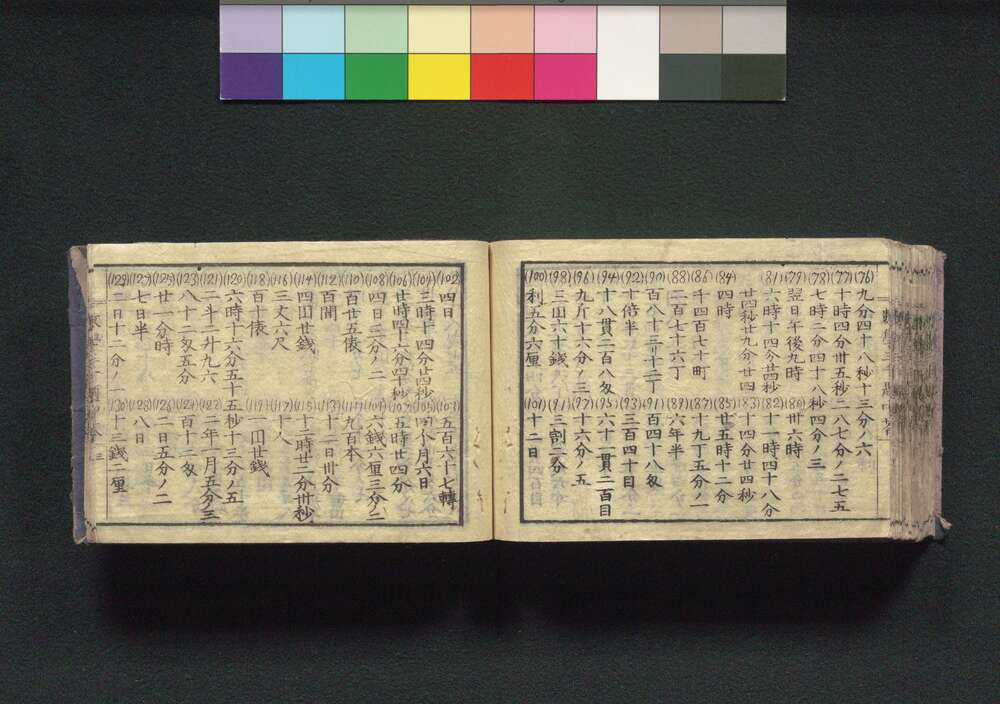 (76) 九分四十八秒十三分ノ六
(77) 十時四分卅五秒二八七分ノ二七五
(78) 七時二分四十八秒四分ノ三
(79) 翌日午後九時 (80) 卅六時
(81) 六時十四分廿四秒 (82) 十一時四十八分
廿四秒廿九分廿四 (83) 十四分廿四秒
(84) 四時 (85) 廿五時十二分
(86) 千四百七十町 (87) 十九丁五分ノ一
(88) 二百七十六丁 (89) 六年半
(90) 百八十三 (91) 百四十八匁
(92) 十倍半 (93) 三百四十目
(94) 十八貫二百八匁 (95) 六十一貫二百目
(96) 九斤十六分ノ三 (97) 十六分ノ五
(98) 三円六十錢 (91) 三割二分
(100) 利五分六厘 (101) 十二日
(102) 四日 (103) 五百六十七轉
(104) 三時十四分廿四秒 (105) 四个月六日
(106) 廿時四十六分四十秒 (107) 五時廿四分
(108) 四日三分ノ二 (109) 六錢六厘三分ノ二
(110) 百廿五俵 (111) 九百本
(112) 百間 (113) 十二日卅分
(114) 四円廿錢 (115) 十二時廿二分卅秒
(116) 三丈六尺 (117) 十八
(118) 百十俵 (119) 一円廿錢
(120) 六時十六分五十五秒十三分ノ五
(121) 二斗二升九六 (122) 二年一月五分ノ三
(123) 八十二匁五分 (124) 百十二匁
(125) 廿一分時 (126) 二日五分ノ二
(127) 七日半 (128) 八日
(129) 二日十二分ノ一 (130) 十三錢二厘